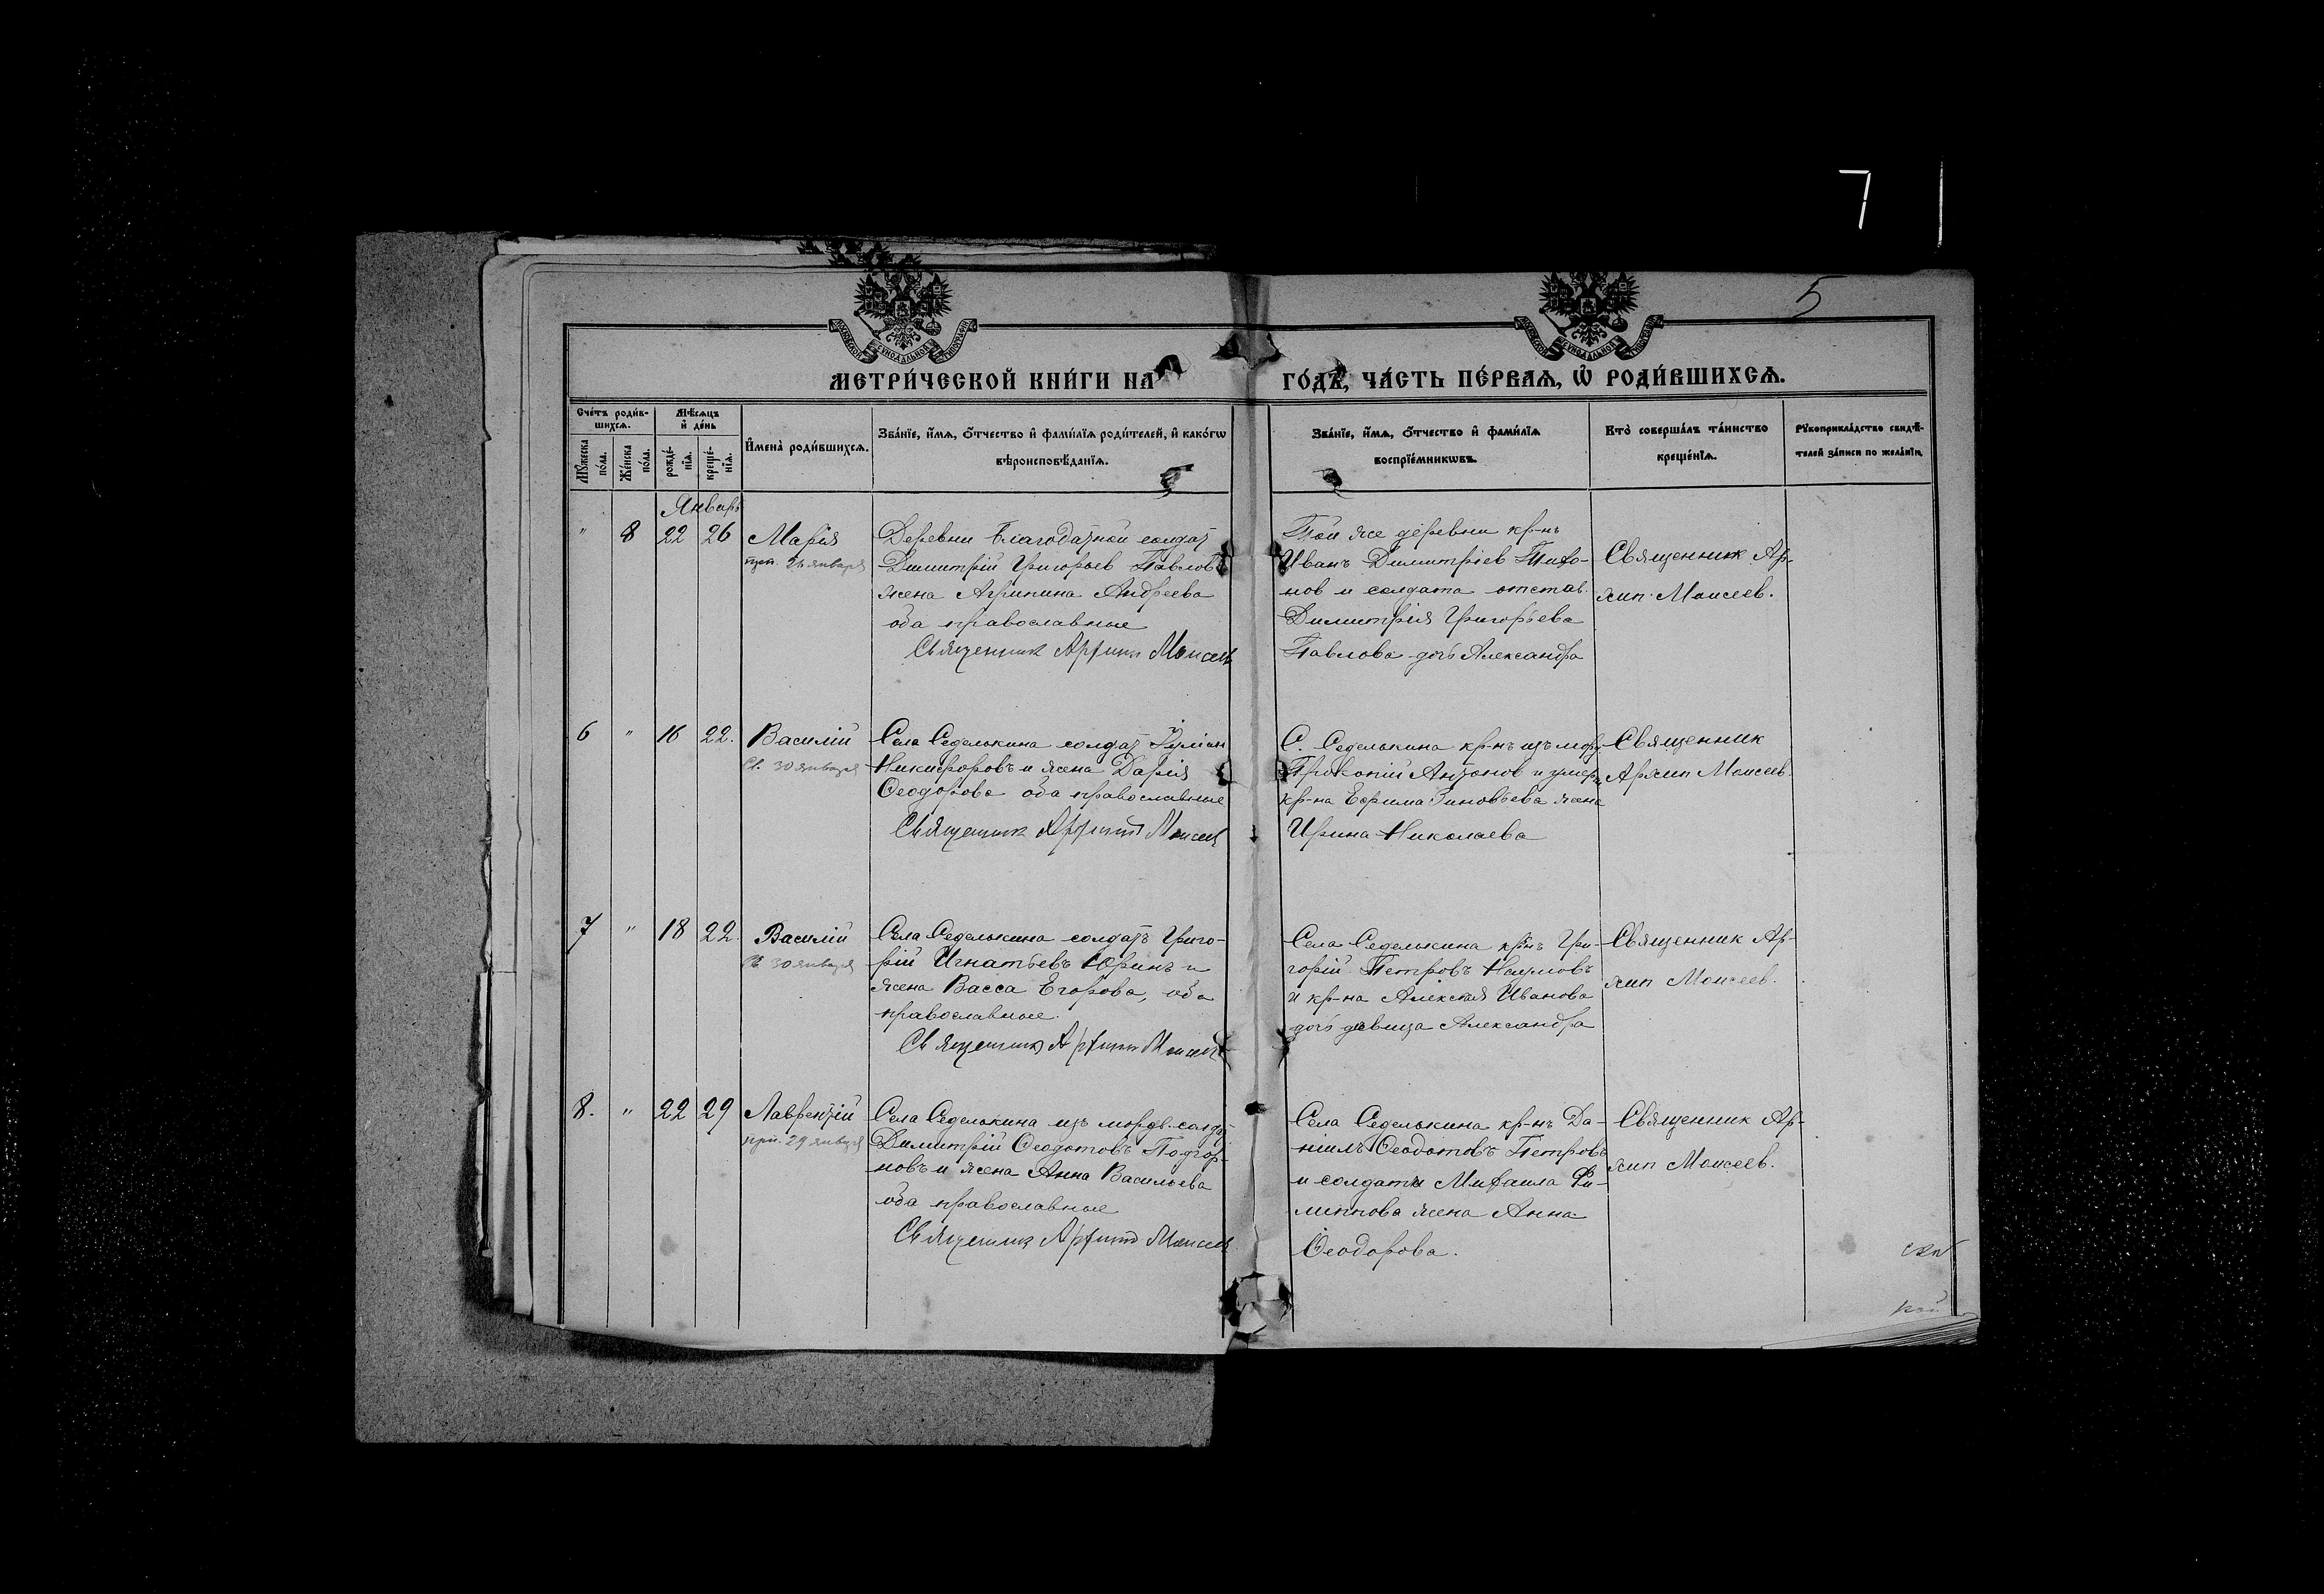 7
5
МОСКОВСКОЙ СѴНОДАЛЬНОЙ ТИПОГРАФІИ
МОСКОВСКОЙ СѴНОДАЛЬНОЙ ТИПОГРАФІИ
МЕТРИ́ЧЕСКОЙ КНИ́ГИ НА ГО́ДЪ, ЧА́СТЬ ПЕ́РВАЯ, Ѡ҆ РОДИ́ВШИХСЯ.
Сче́тъ роди́в-
шихся.
Мꙋ́жеска
по́ла.
Же́нска
по́ла.
Мѣ́сяцъ
и҆ де́нь
рожде́-
нїя.
креще́-
нїя.
И҆мена̀ роди́вшихся.
Зва́нїе, и҆́мя, ѻ҆́тчество и҆ фами́лїя роди́телей, и҆ како́гѡ
вѣроисповѣ́данїя.
Зва́нїе, и҆́мя, ѻ҆́тчество и҆ фами́лїя
воспрїе́мникѡвъ.
Кто̀ соверша́лъ та́инство
креще́нїя.
Рꙋкоприкла́дство свидѣ́-
телей за́писи по жела́нїю.
Январь
" 8 22 26
Марія
Деревни Благодатной солдат
Димитрій Григорьев Павловъ
жена Агрипина Андреева
оба православные
Священник Архипп Моисеев
Той же деревни кр-нъ
Иванъ Димитріев Тихо-
нов и солдата отстав.
Димитрія Григорьева
Павлова дочь Александра
Священник Ар-
хип Моисеев.
6 " 16 22.
Василій
30 января
Села Седелькина солдат
Никифоровъ и жена Дарія
Ѳеодорова оба православные
Священник Архипп Моисеев
С. Седелькина кр-нъ изъ
Прокопій Антонов и
кр-на Ефрима Зиновьева жена
Ирина Николаева
Священник
Архип Моисеев.
7 " 18 22.
Василій
30 января
Села Седелькина солдатъ Григо-
рій Игнатьевъ Юринъ и
жена Васса Егорова, оба
православные.
Священник Архипп Моисеев
Села Седелькина кр-нъ Гри-
горій Петровъ Наумовъ
и кр-на Алексія Иванова
дочь девица Александра
Священник Ар-
хип Моисеев.
8. " 22 29
Лаврентій
29 января
Села Седелькина изъ мордв. солдат
Димитрій Ѳеодотовъ Подгор-
новъ и жена Анна Васильева
оба православные
Священник Архипп Моисеев
Села Седелькина кр-нъ Да-
ніилъ Ѳеодотовъ Петровъ
и солдата Михаила Фи-
липпова жена Анна
Ѳеодорова.
Священник Ар-
хип Моисеев.